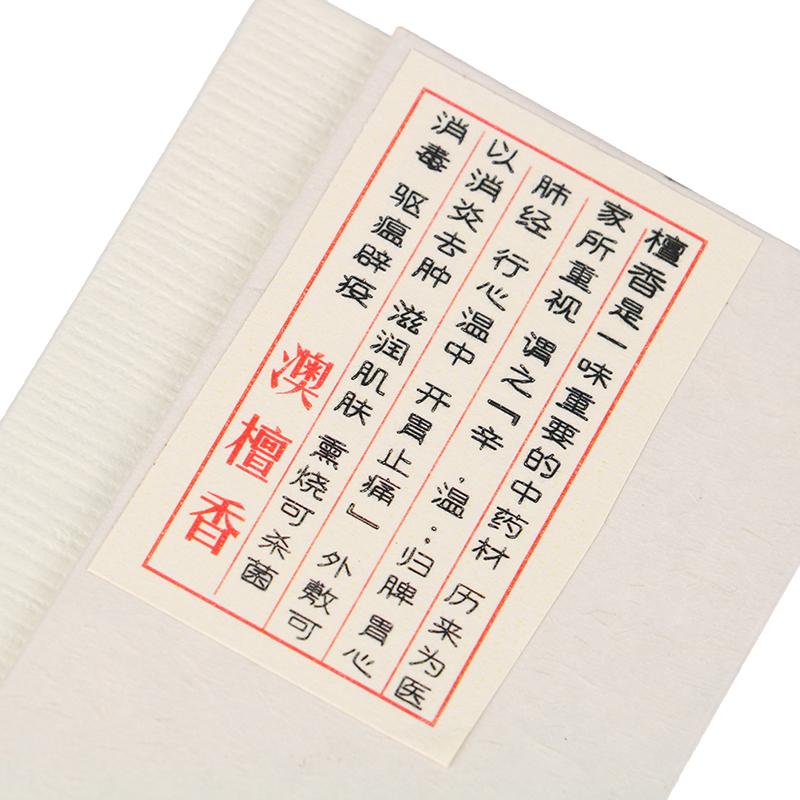 檀香是一味重要的中药材 历来为医
家所重视 谓之『辛 。温。:归脾 胃心
肺经 行心温中 开胃止痛』 外敷可
以消炎去肿 滋润肌肤 熏烧可杀菌
消毒 驱瘟辟疫
澳檀香